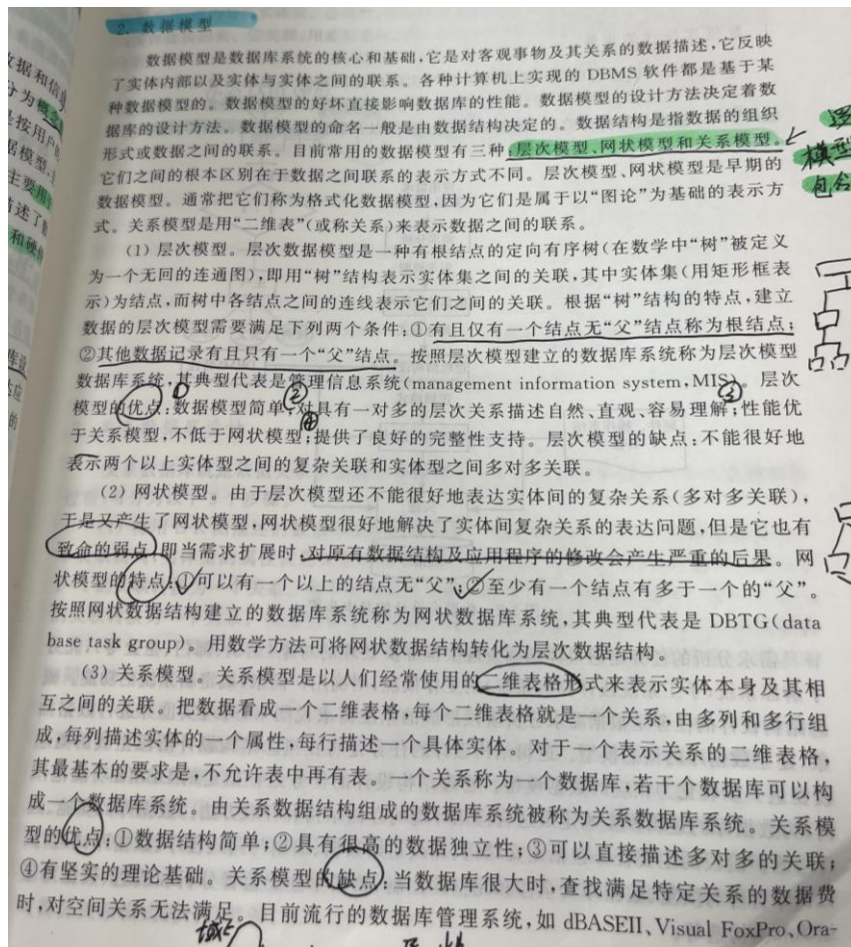 2. 数据模型
数据模型是数据库系统的核心和基础,它是对客观事物及其关系的数据描述,它反映
了实体内部以及实体与实体之间的联系。各种计算机上实现的 DBMS 软件都是基于某
种数据模型的。数据模型的好坏直接影响数据库的性能。数据模型的设计方法决定着数
据库的设计方法。数据模型的命名一般是由数据结构决定的。数据结构是指数据的组织
形式或数据之间的联系。目前常用的数据模型有三种:层次模型、网状模型和关系模型。
它们之间的根本区别在于数据之间联系的表示方式不同。层次模型、网状模型是早期的
数据模型。通常把它们称为格式化数据模型,因为它们是属于以“图论”为基础的表示方
式。关系模型是用“二维表”(或称关系)来表示数据之间的联系。
(1) 层次模型。层次数据模型是一种有根结点的定向有序树(在数学中“树”被定义
为一个无回的连通图),即用“树”结构表示实体集之间的关联,其中实体集(用矩形框表
示)为结点,而树中各结点之间的连线表示它们之间的关联。根据“树”结构的特点,建立
数据的层次模型需要满足下列两个条件:①有且仅有一个结点无“父”结点称为根结点;
②其他数据记录有且只有一个“父”结点。按照层次模型建立的数据库系统称为层次模型
数据库系统,其典型代表是管理信息系统(management information system,MIS)。层次
模型的优点:数据模型简单;对具有一对多的层次关系描述自然、直观、容易理解;性能优
于关系模型,不低于网状模型;提供了良好的完整性支持。层次模型的缺点:不能很好地
表示两个以上实体型之间的复杂关联和实体型之间多对多关联。
(2) 网状模型。由于层次模型还不能很好地表达实体间的复杂关系(多对多关联),
于是又产生了网状模型,网状模型很好地解决了实体间复杂关系的表达问题,但是它也有
致命的弱点,即当需求扩展时,对原有数据结构及应用程序的修改会产生严重的后果。网
状模型的特点:①可以有一个以上的结点无“父”;②至少有一个结点有多于一个的“父”。
按照网状数据结构建立的数据库系统称为网状数据库系统,其典型代表是 DBTG(data
base task group)。用数学方法可将网状数据结构转化为层次数据结构。
(3) 关系模型。关系模型是以人们经常使用的二维表格形式来表示实体本身及其相
互之间的关联。把数据看成一个二维表格,每个二维表格就是一个关系,由多列和多行组
成,每列描述实体的一个属性,每行描述一个具体实体。对于一个表示关系的二维表格,
其最基本的要求是,不允许表中再有表。一个关系称为一个数据库,若干个数据库可以构
成一个数据库系统。由关系数据结构组成的数据库系统被称为关系数据库系统。关系模
型的优点:①数据结构简单;②具有很高的数据独立性;③可以直接描述多对多的关联;
④有坚实的理论基础。关系模型的缺点:当数据库很大时,查找满足特定关系的数据费
时,对空间关系无法满足。目前流行的数据库管理系统,如 dBASEII、Visual FoxPro、Ora-
模型
包含